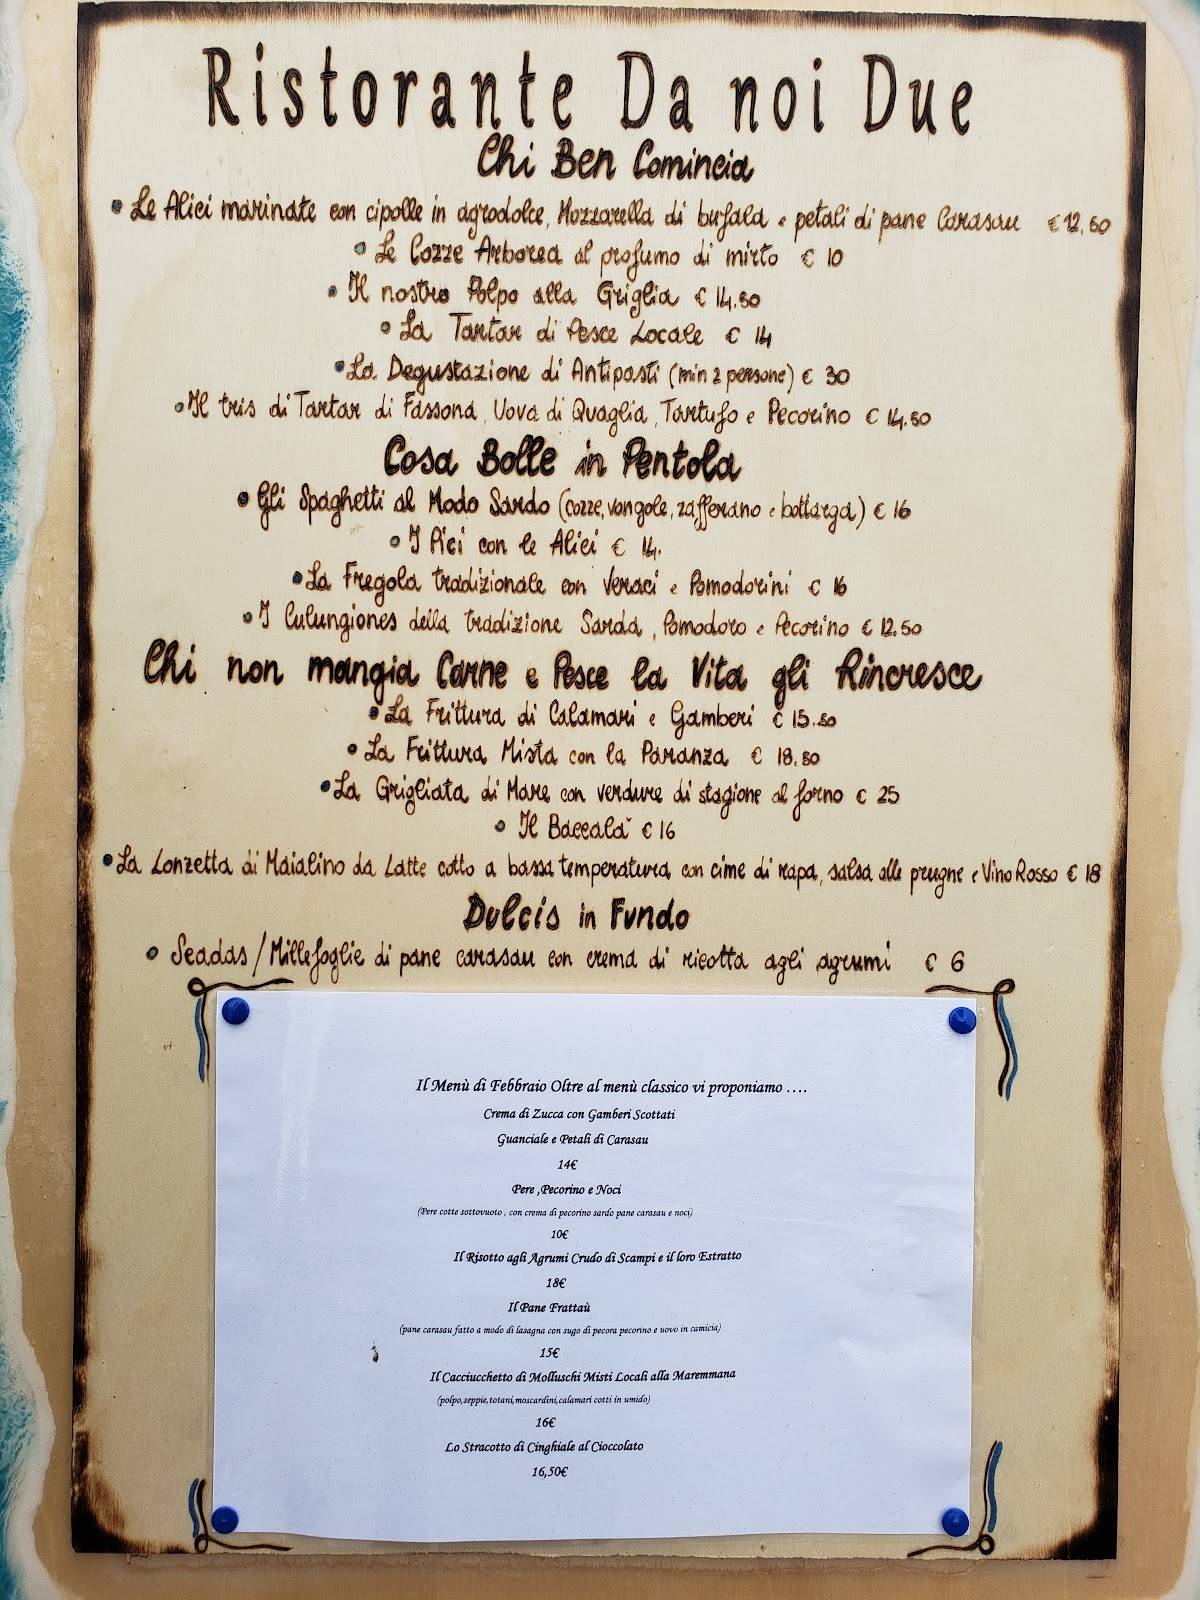 Ristorante Da noi Due
Chi Ben Comincia
• Le Alici marinate con cipolle in agrodolce, Mozzarella di bufala e petali di pane Carasau € 12,50
• Le Cozze Arborea al profumo di mirto € 10
• Il nostro Polpo alla Griglia € 14.50
• La Tartar di Pesce Locale € 14
• La Degustazione di Antipasti (min 2 persone) € 30
• Il tris di Tartar di Fassona, Uova di Quaglia, Tartufo e Pecorino € 14.50
Cosa Bolle in Pentola
• Gli Spaghetti al Modo Sardo (cozze, vongole, zafferano e bottarga) € 16
• I Pici con le Alici € 14.
• La Fregola tradizionale con Veraci e Pomodorini € 16
• I Culungiones della tradizione Sarda, Pomodoro e Pecorino € 12.50
Chi non mangia Carne e Pesce la Vita gli Rincresce
• La Frittura di Calamari e Gamberi € 15.50
• La Frittura Mista con la Paranza € 18.50
• La Grigliata di Mare con verdure di stagione al forno € 25
• Il Baccalà € 16
• La Lonzetta di Maialino da Latte cotto a bassa temperatura con cime di rapa, salsa alle prugne e Vino Rosso € 18
Dulcis in Fundo
• Seadas / Millefoglie di pane carasau con crema di ricotta agli agrumi € 6
Il Menù di Febbraio Oltre al menù classico vi proponiamo ....
Crema di Zucca con Gamberi Scottati
Guanciale e Petali di Carasau
14€
Pere ,Pecorino e Noci
(Pere cotte sottovuoto , con crema di pecorino sardo pane carasau e noci)
10€
Il Risotto agli Agrumi Crudo di Scampi e il loro Estratto
18€
Il Pane Frattaù
(pane carasau fatto a modo di lasagna con sugo di pecora pecorino e uovo in camicia)
15€
Il Cacciucchetto di Molluschi Misti Locali alla Maremmana
(polpo,seppie,totani,moscardini,calamari cotti in umido)
16€
Lo Stracotto di Cinghiale al Cioccolato
16,50€